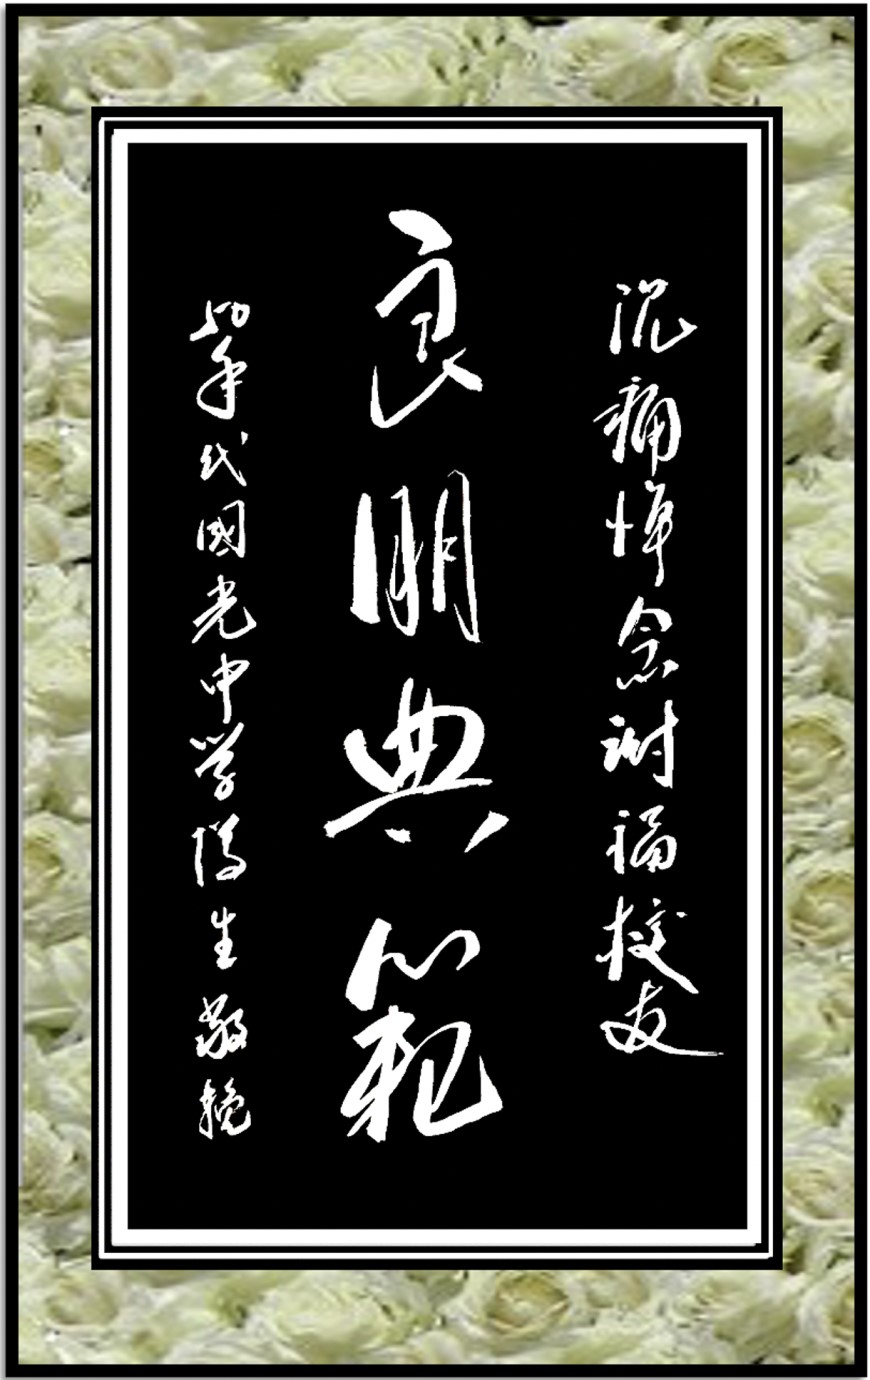 沉痛悼念謝福校友
良朋典範
50年代國光中學僑生敬輓